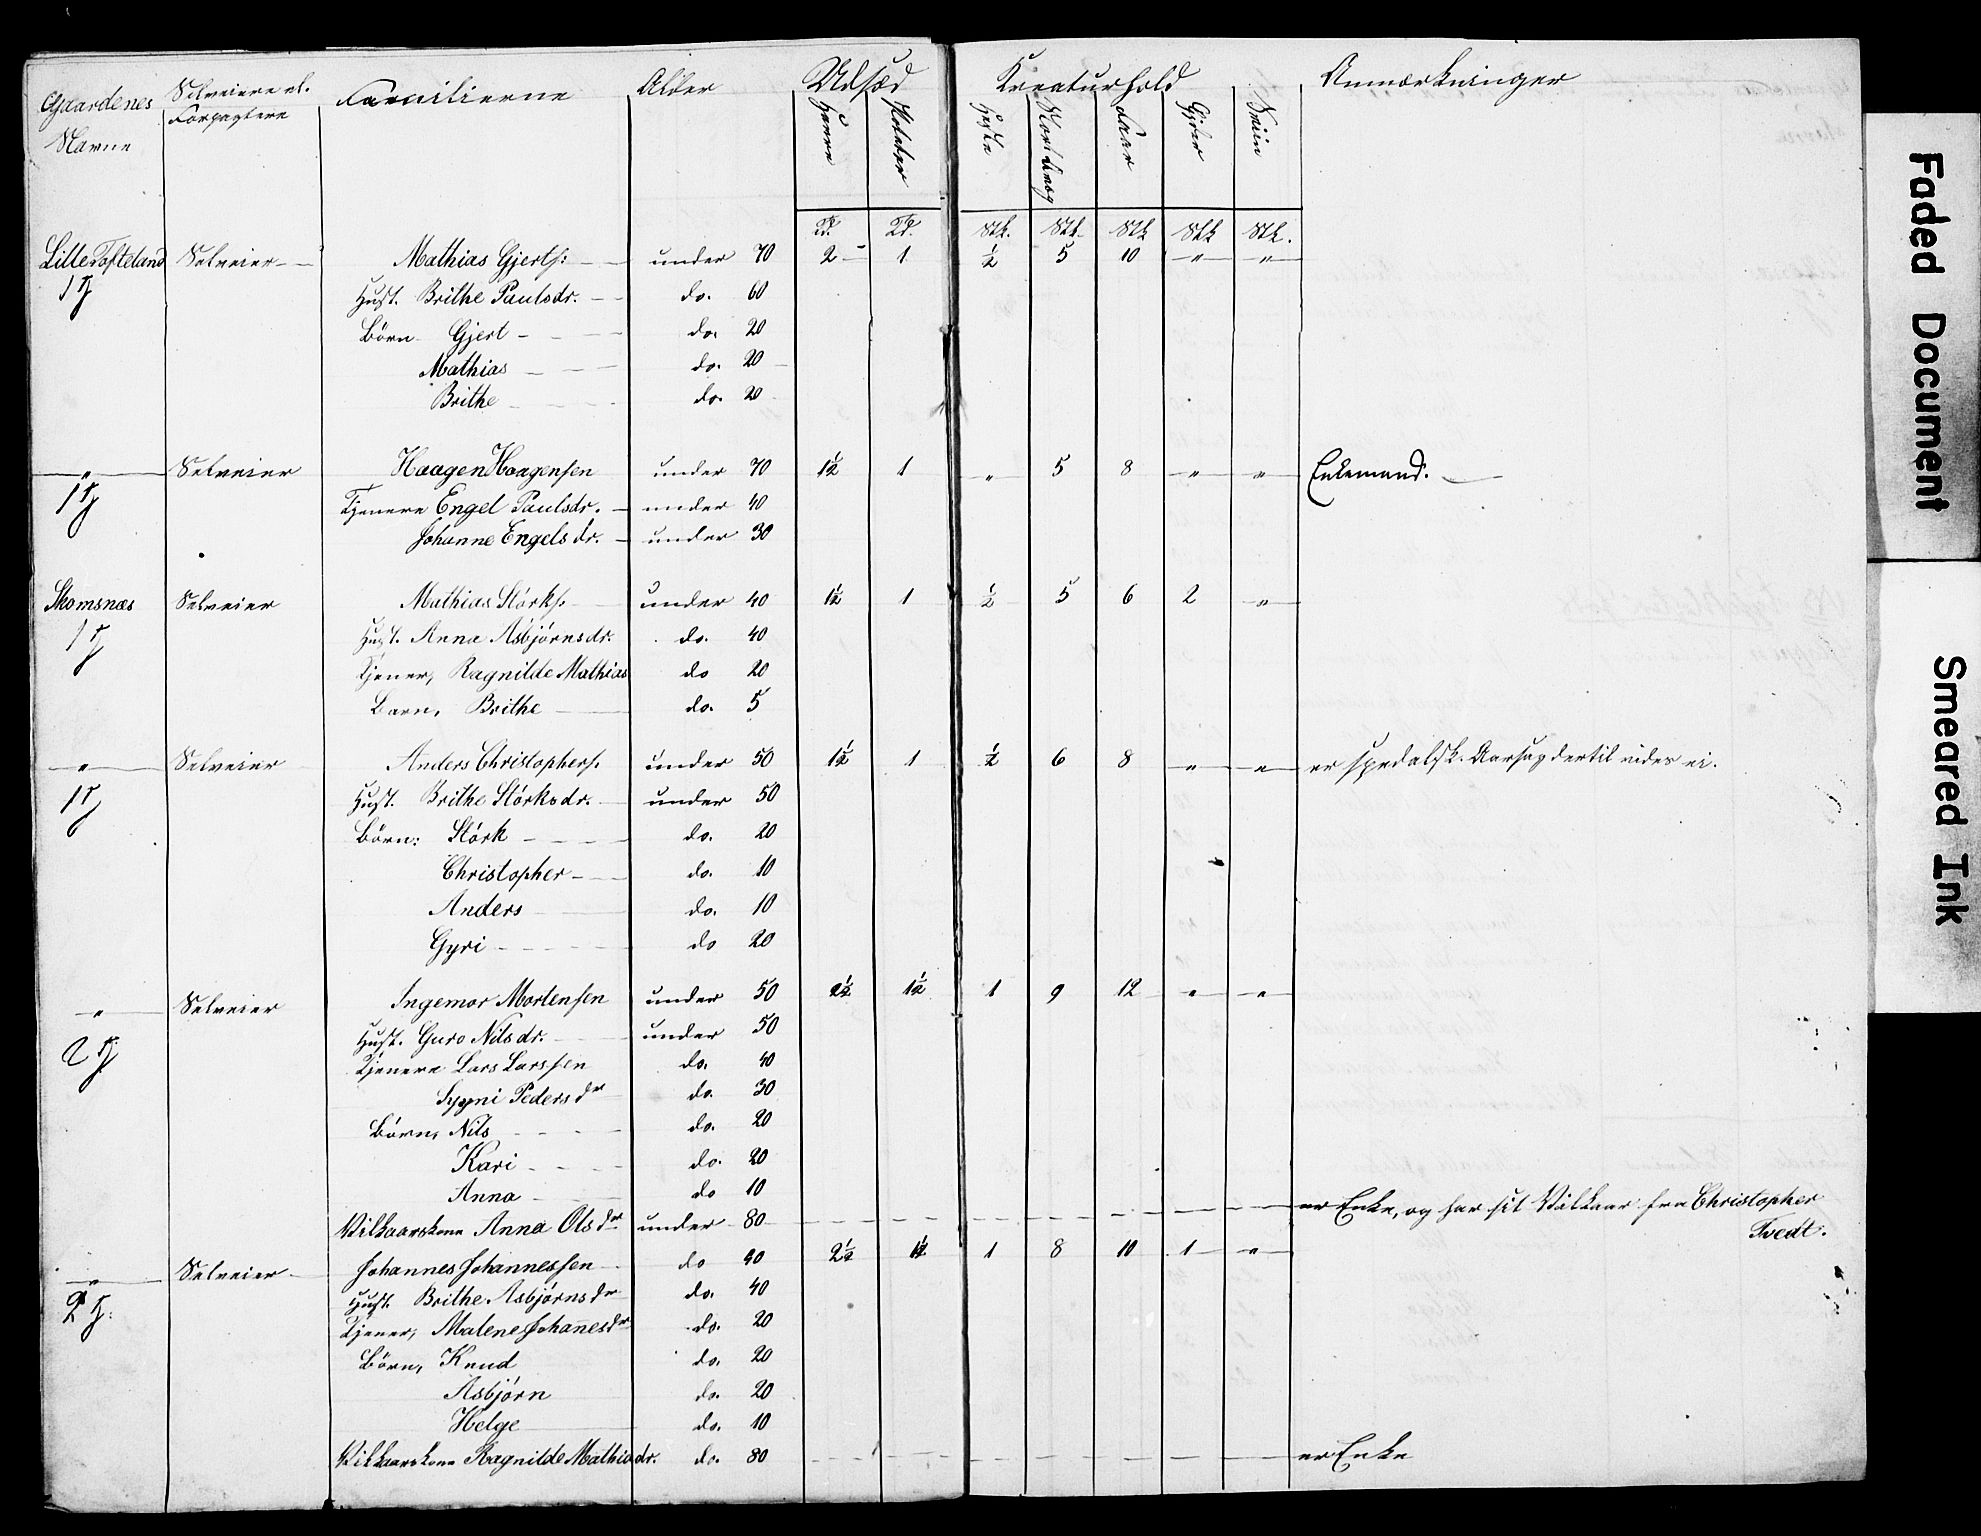 Gaardenes Navne | Selveiere el. Forpagtere | Familierne | Alder | Udsæd | Kreaturhold | Anmærkninger
Havre | Poteter | Heste | Stort Qvæg | Faar | Gjeder | Sviin
Td. | Td. | Stk. | Stk. | Stk | Stk | Stk.
Lille Tofteland | Selveier | Mathias Gjerts: | under 70 | 2 | 1 | ½ | 5 | 10 | " | "
1 | Hust. Brithe Paulsdr. | do. 60
Børn Gjert | do. 20
Mathias | do. 20
Brithe | do. 20
" | Selveier | Haagen Haagensen | under 70 | 1½ | 1 | " | 5 | 8 | " | " | Enkemand.
1 | Tjenere Engel Paulsdr. | under 40
Johanne Engelsdr. | under 30
Skomsnæs | Selveier | Mathias Størks. | under 40 | 1½ | 1 | ½ | 5 | 6 | 2 | "
1 | Hust. Anna Asbjørnsdr. | do. 40
Tjener, Ragnilde Mathias | do 20
Barn, Brithe | do. 5
" | Selveier | Anders Christophers. | under 50 | 1½ | 1 | ½ | 6 | 8 | " | " | er spedalsk. Aarsag dertil vides ei.
1 | Hust. Brithe Størksdr. | under 50
Børn: Størk | do. 20
Christopher | do. 10
Anders | do. 10
Gyri | do 20
" | Selveier | Ingemar Mortensen | under 50 | 2½ | 1½ | 1 | 9 | 12 | " | "
2 | Hust. Guro Nilsdr. | under 50
Tjenere Lars Larssen | do. 40
Sygni Pedersdr | do. 30
Børn, Nils | do. 20
Kari | do. 20
Anna | do 10
Vilkaarskone Anna Olsdr | under 80 | er Enke, og har sit Vilkaar fra Christopher
Tvedt.
" | Selveier | Johannes Johannessen | do 40 | 2½ | 1½ | 1 | 8 | 10 | 1 | "
2 | Hust. Brithe Asbjørnsdr | do. 40
Tjener, Malene Johanesdr | do. 20
Børn, Knud | do. 20
Asbjørn | do. 20
Helge | do. 10
Vilkaarskone Ragnilde Mathiadr. | do. 80 | er Enke
Faded Document
Smeared Ink